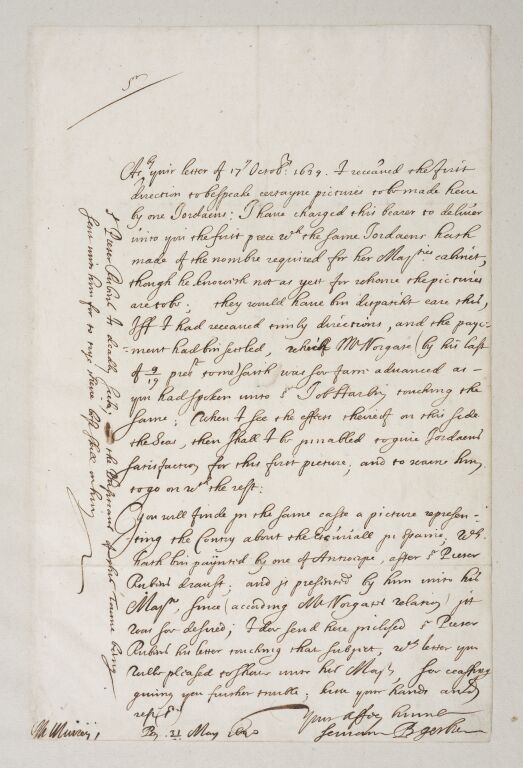 Sr
By your letter of 17 Octobr. 1639. I receaved the first
direction to bespeake certayne pictures to be made heere
by one Jordaens; I have charged this bearer to deliver
unto you the first peece wch the same Jordaens hath
made of the nombre required for her Maties cabinet,
though he knoweth not as yett for whome the pictures
are to be; they would have bin dispatcht eare this,
Iff I had receaved timly directions, and the pay-
ment had bin setled, which Mr Norgate (by his last
of 9/19 presnt to me saith was so farr advanced as
you had spoken unto Sr Job Harby touching the
same; When I see the effects thereof on this side
the Seas, then shall I be innabled to give Jordaens
satisfaction for this first picture, and to warne him
to go on wth the rest.
You will finde in the same caise a picture represen-
ting the Contry about the Escuriall in Spaine, wch
hath bin paynted by one of Antwerpe, after Sr Peeter
Rubens draught; and is presented by him unto his
Maty, since (according Mr Norgates relation) itt
was so desired; I doe send heere inclosed Sr Peeter
Rubens his letter touching that subject, wch letter you
wilbe pleased to shewe unto his Maty. So ceassing
giving you further trouble; kisse your hands and
rest
Your affect humble
servant B Gerbier
Br. 21 May 1640
Mr Murray,
Sr Peeter Rubens is deadly sick; the Phisicians of this Towne being
sent unto him for to trye their best skill on him